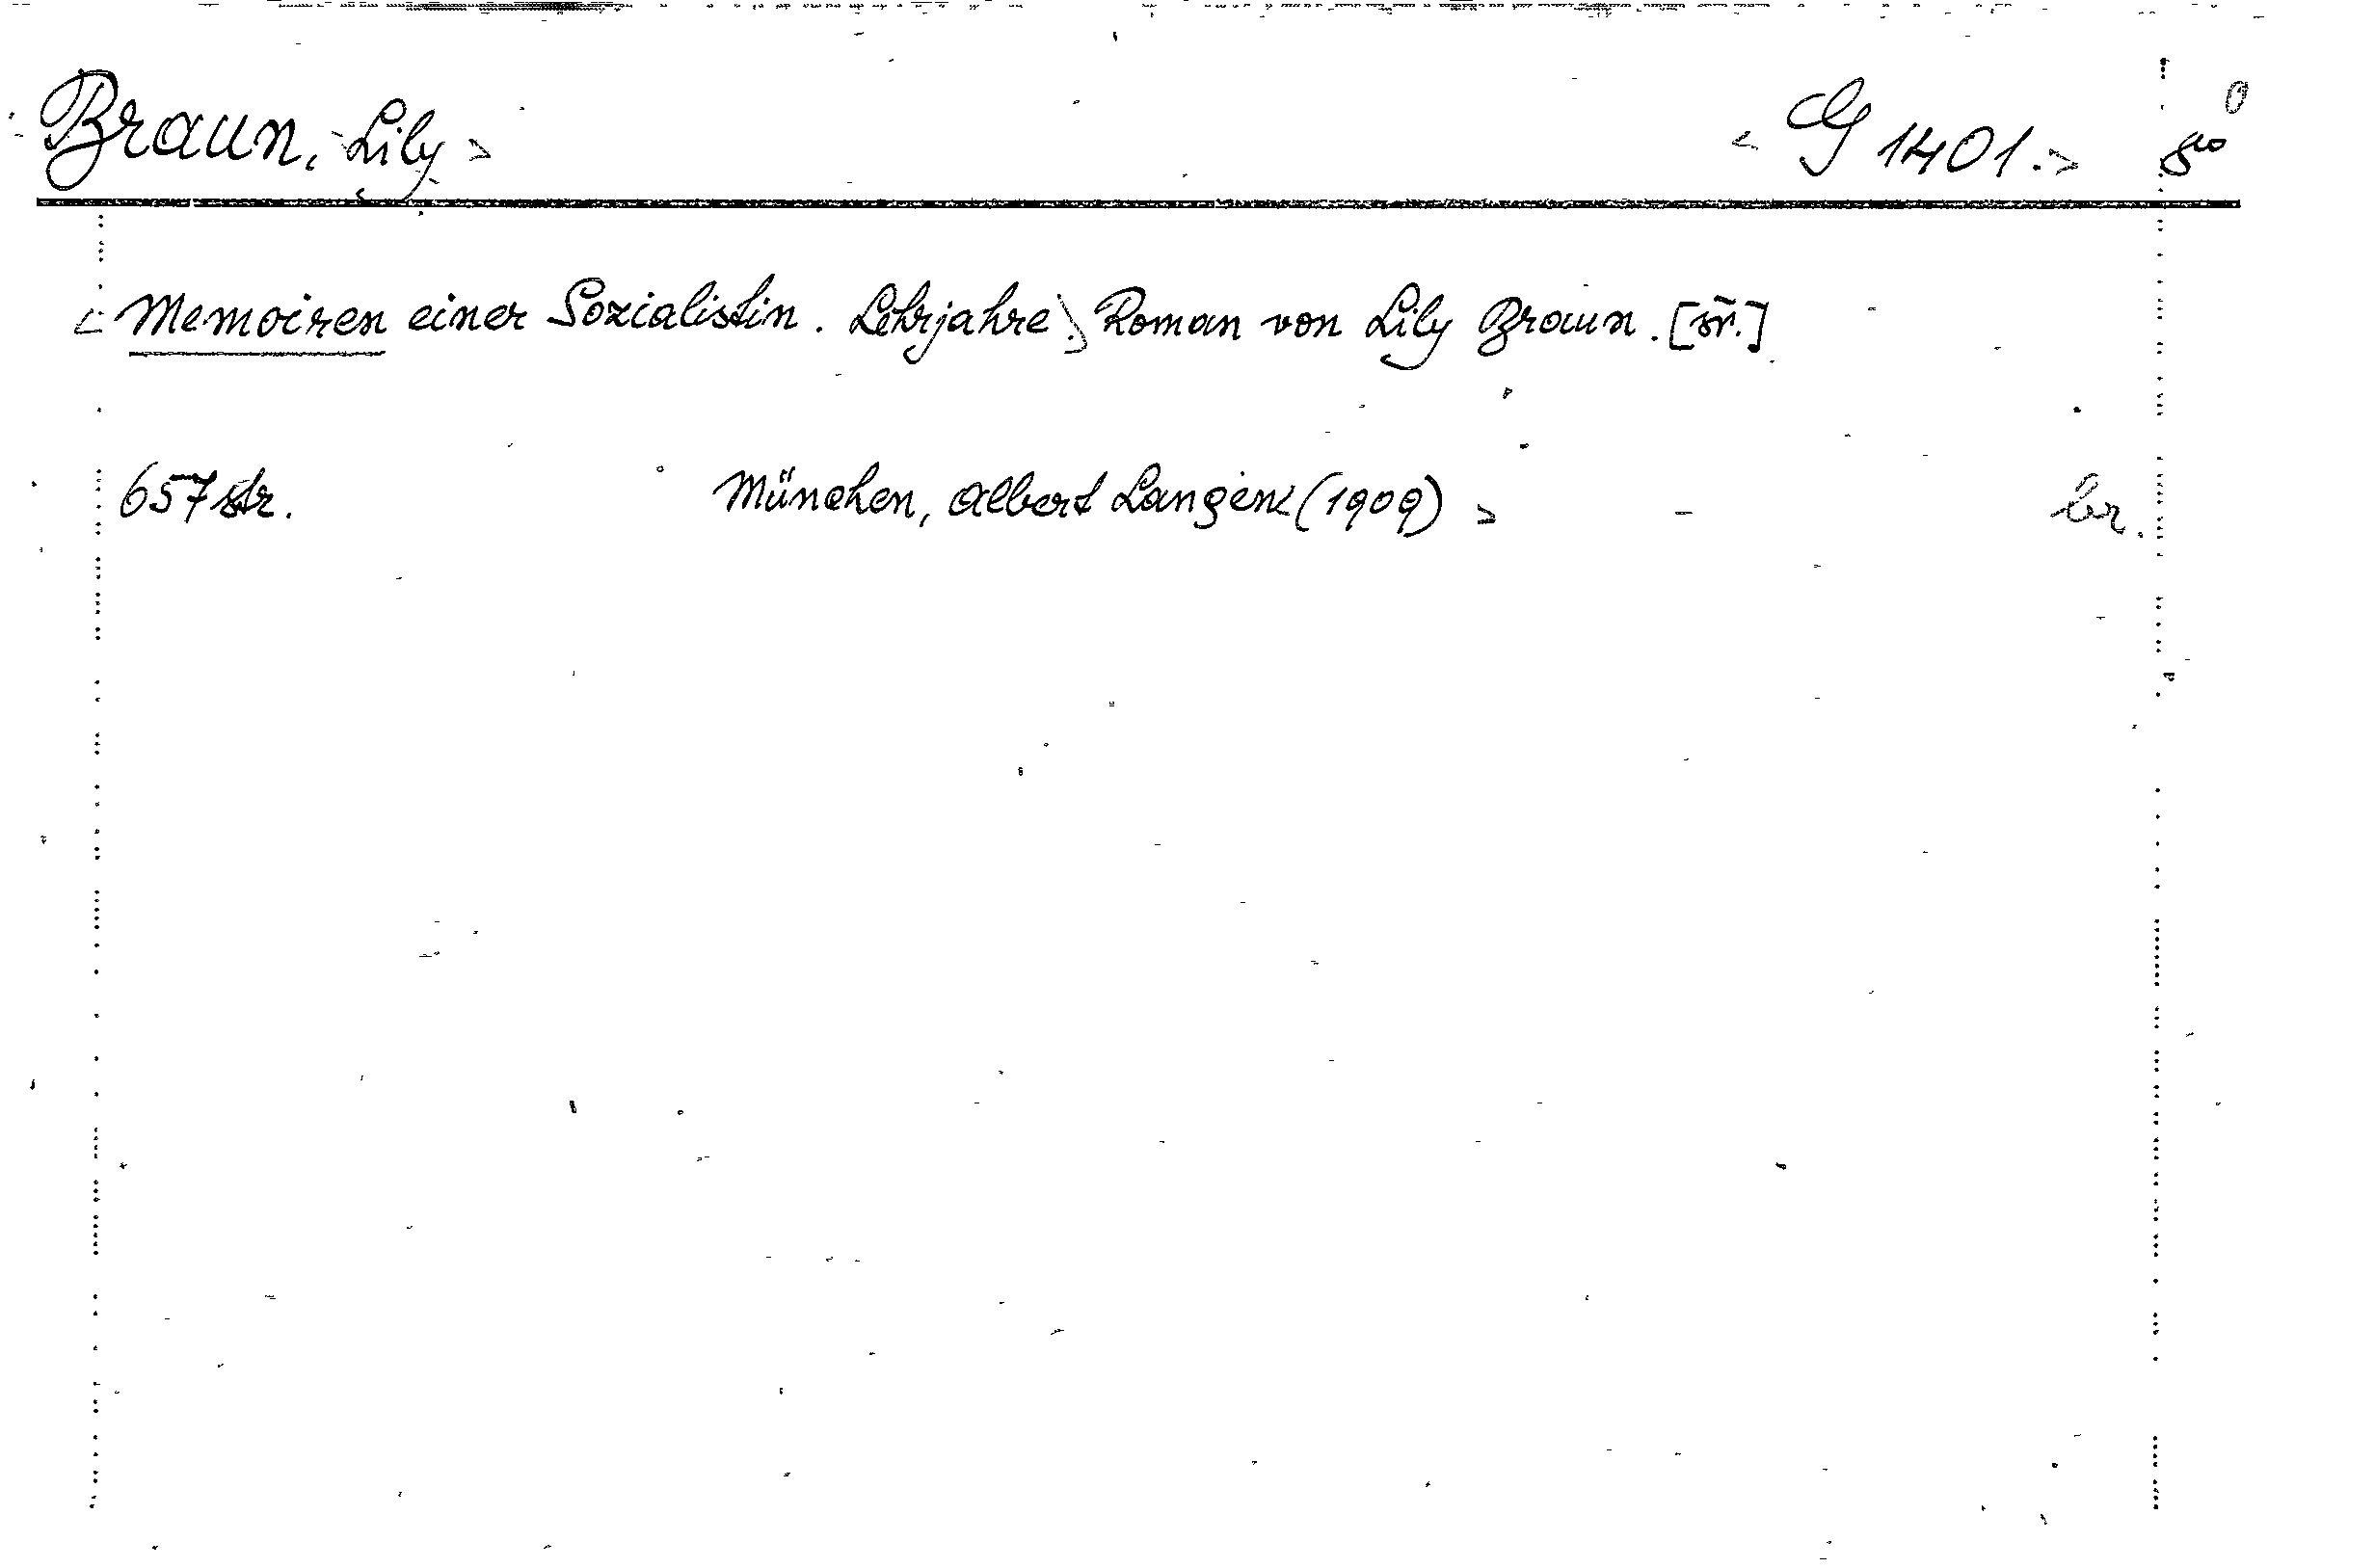 Braun, Lily > < G 1401. > 8°
< Memoiren einer Sozialistin. Lehrjahre.> Roman von Lily Braun.
657 str. München, Albert Langen (1909) > br.